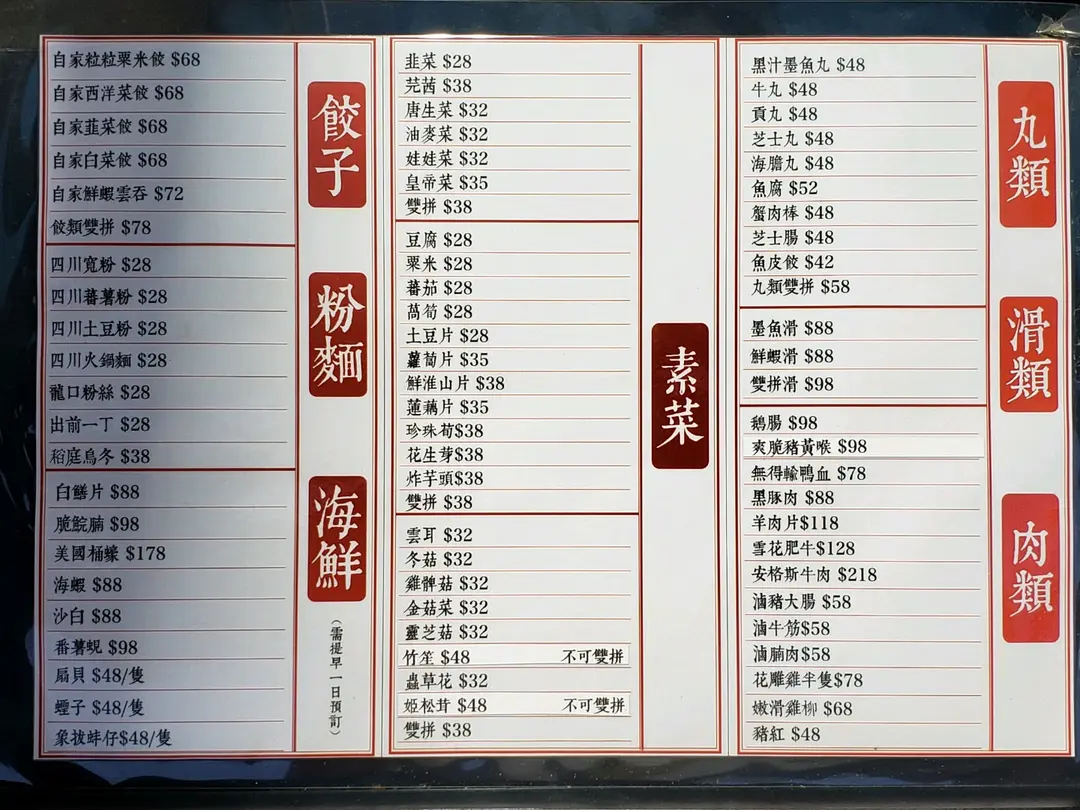 餃子
自家粒粒粟米餃 $68
自家西洋菜餃 $68
自家韮菜餃 $68
自家白菜餃 $68
自家鮮蝦雲吞 $72
餃類雙拼 $78
粉麵
四川寬粉 $28
四川蕃薯粉 $28
四川土豆粉 $28
四川火鍋麵 $28
龍口粉絲 $28
出前一丁 $28
稻庭烏冬 $38
海鮮
(需提早一日預訂)
白鱔片 $88
脆鯇腩 $98
美國桶蠔 $178
海蝦 $88
沙白 $88
番薯蜆 $98
扇貝 $48/隻
蟶子 $48/隻
象拔蚌仔$48/隻
素菜
韭菜 $28
芫茜 $38
唐生菜 $32
油麥菜 $32
娃娃菜 $32
皇帝菜 $35
雙拼 $38
豆腐 $28
粟米 $28
蕃茄 $28
萵筍 $28
土豆片 $28
蘿蔔片 $35
鮮淮山片 $38
蓮藕片 $35
珍珠筍$38
花生芽$38
炸芋頭$38
雙拼 $38
雲耳 $32
冬菇 $32
雞髀菇 $32
金菇菜 $32
靈芝菇 $32
竹笙 $48 不可雙拼
蟲草花 $32
姬松茸 $48 不可雙拼
雙拼 $38
丸類
黑汁墨魚丸 $48
牛丸 $48
貢丸 $48
芝士丸 $48
海膽丸 $48
魚腐 $52
蟹肉棒 $48
芝士腸 $48
魚皮餃 $42
丸類雙拼 $58
滑類
墨魚滑 $88
鮮蝦滑 $88
雙拼滑 $98
肉類
鵝腸 $98
爽脆豬黃喉 $98
無得輸鴨血 $78
黑豚肉 $88
羊肉片$118
雪花肥牛$128
安格斯牛肉 $218
滷豬大腸 $58
滷牛筋$58
滷腩肉$58
花雕雞半隻$78
嫩滑雞柳 $68
豬紅 $48